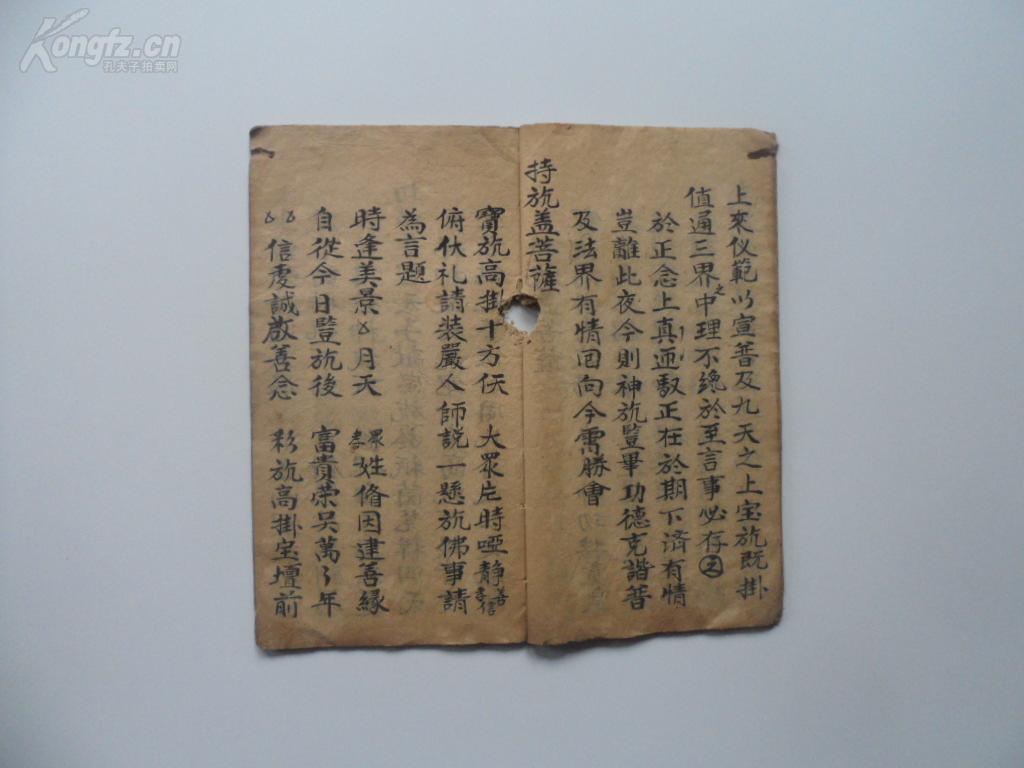 Kongfz.cn
孔夫子拍卖网
上來仪範以宣普及九天之上宝旒既掛
值通三界之中理不纔於至言事必存
於正念上真迊馭正在於期下済有情
豈離此夜今則神旒豎畢功德克諧普
及法界有情回向今霄勝會
持旒盖菩薩
寶旒高掛十方伕 大眾片時啞靜 善信
俯伏礼請裝嚴人 師説一懸旒佛事請
為言題
時逢美景 月天 眾姓脩因建善緣
自從今日豎旒後 富貴荣吴萬々年
信虔誠啟善念 彩旒高掛宝壇前